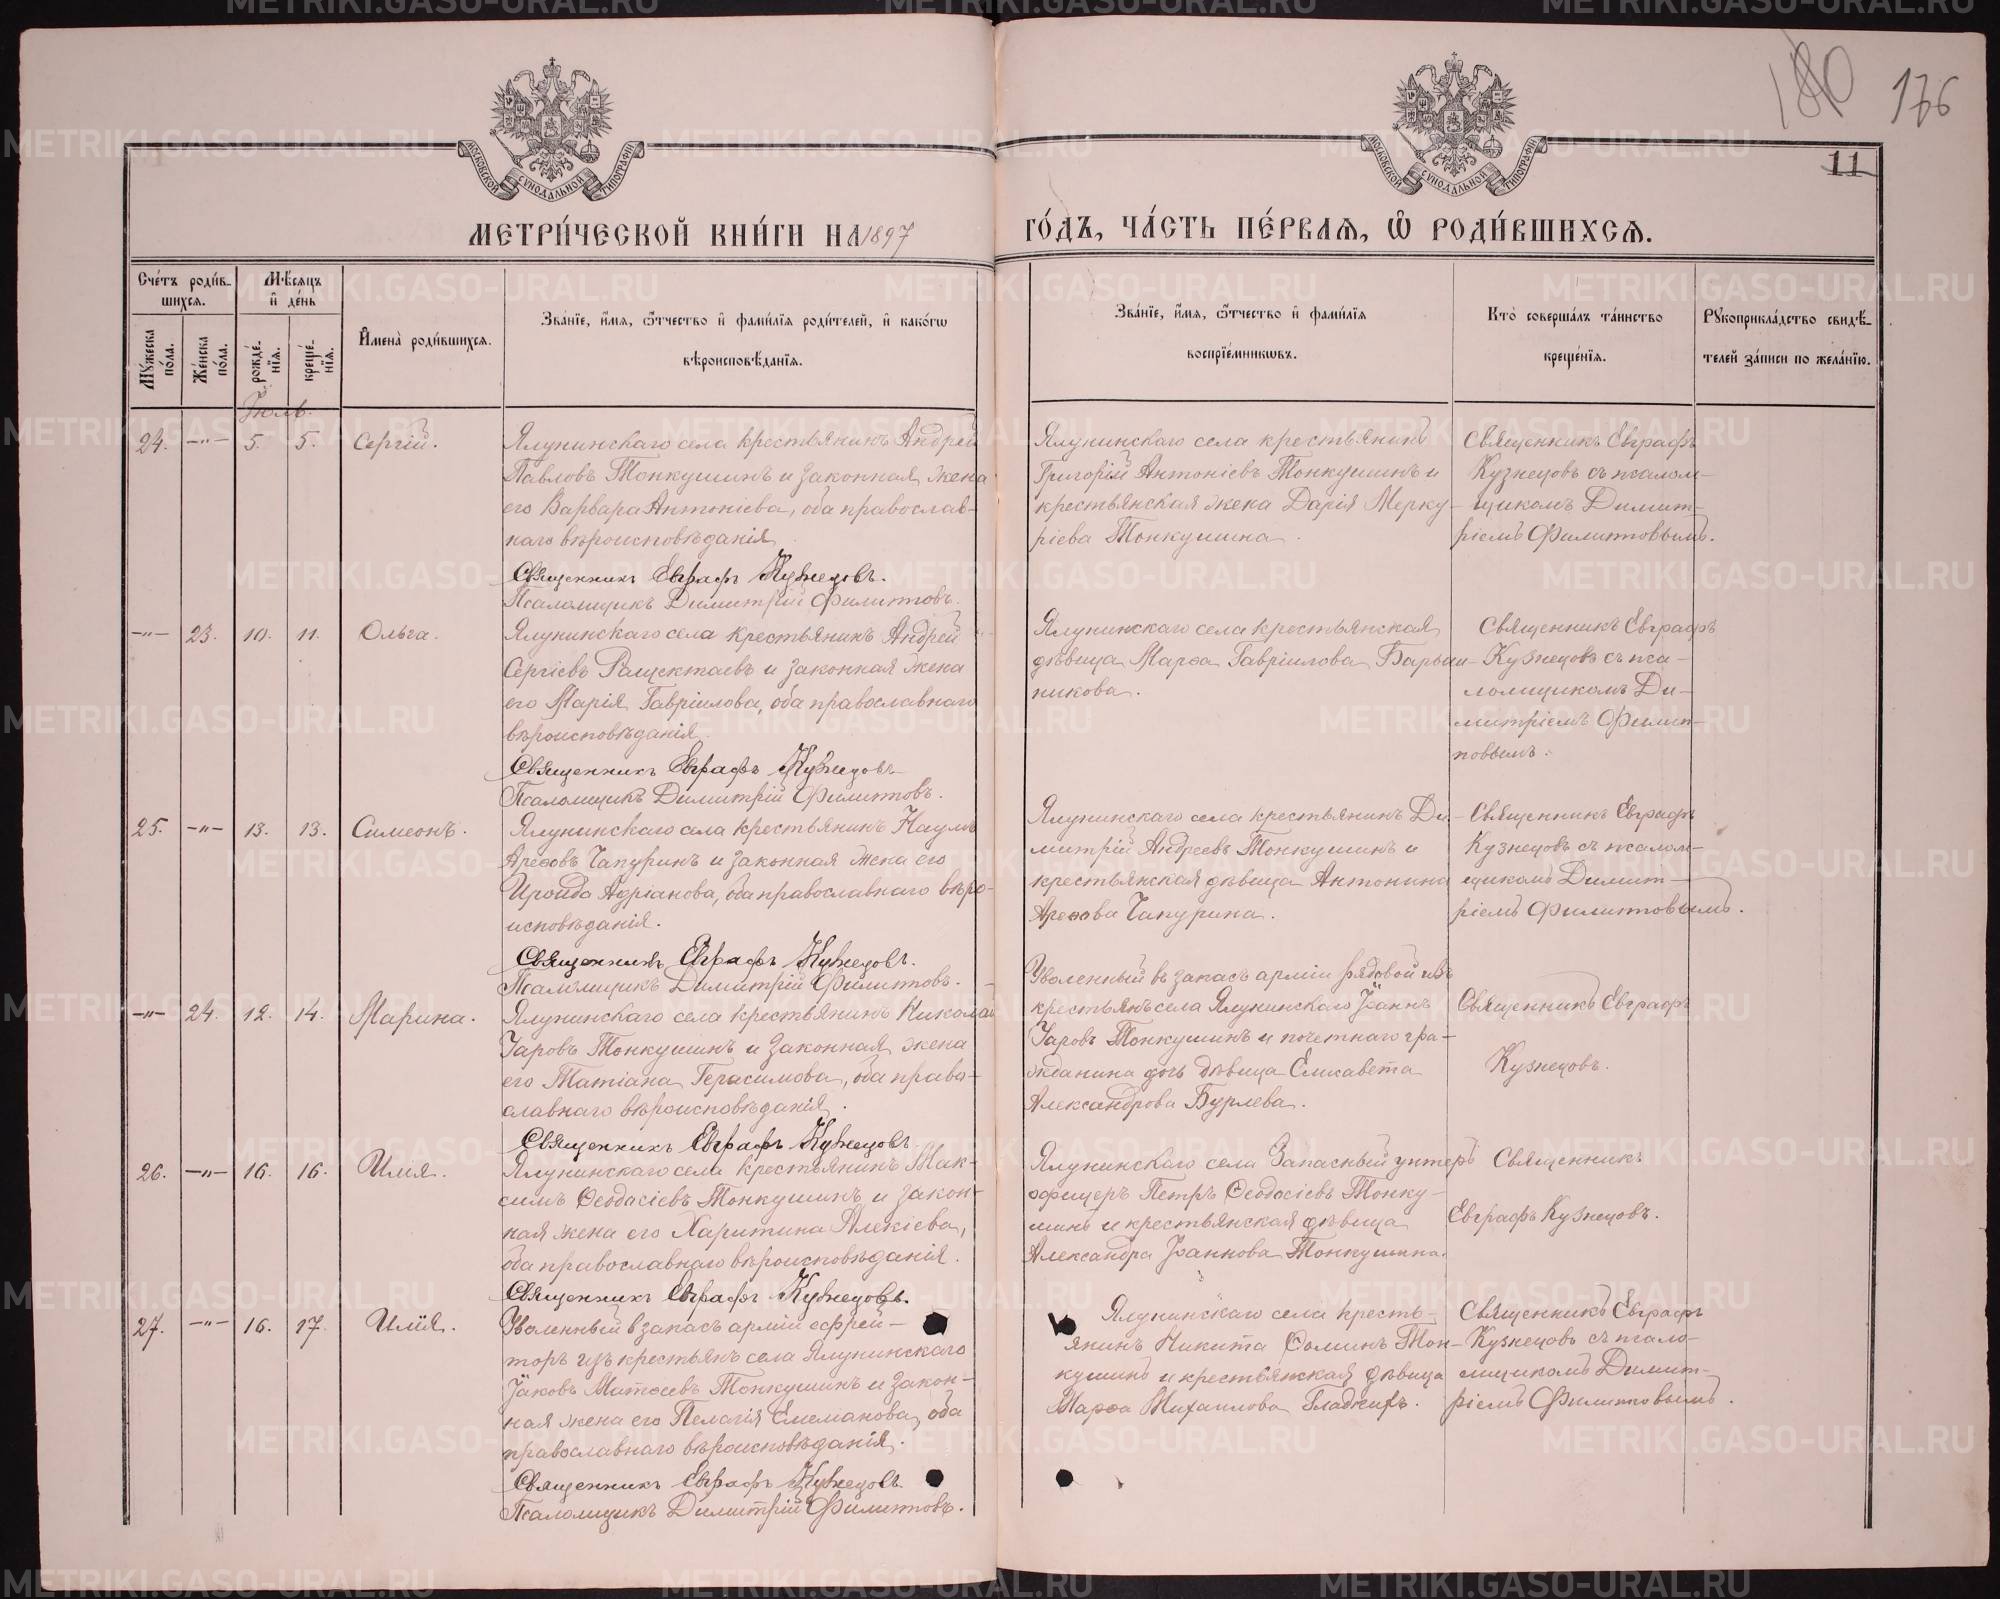 180 176
11
МОСКОВСКОЙ СѴНОДАЛЬНОЙ ТИПОГРАФИИ
МОСКОВСКОЙ СѴНОДАЛЬНОЙ ТИПОГРАФИИ
МЕТРИ́ЧЕСКОЙ КНИ́ГИ НА 1897 ГО́ДЪ, ЧА́СТЬ ПЕ́РВАѦ, Ѽ РОДИ́ВШИХСѦ.
Сче́тъ роди́в-
шихсѧ.
Мꙋ́жеска по́ла.
Же́нска по́ла.
Мѣ́сѧцъ
и҆ де́нь
рожде́-нїѧ.
креще́-нїѧ.
И҆мена̀ роди́вшихсѧ.
Зва́нїе, и҆́мѧ, ѻ҆́тчество и҆ фами́лїѧ роди́телей, и҆ како́гѡ
вѣроисповѣ́данїѧ.
Зва́нїе, и҆́мѧ, ѻ҆́тчество и҆ фами́лїѧ
воспрїе́мникѡвъ.
Кто̀ соверша́лъ та́инство
креще́нїѧ.
Рꙋкоприкла́дство свидѣ́-
телей за́писи по жела́нїю.
Іюль.
24. —„— 5. 5. Сергій.
Ялунинскаго села крестьянинъ Андрей
Павловъ Тонкушинъ и законная жена
его Варвара Антоніева, оба православ-
наго вѣроисповѣданія.
Священникъ Евграфъ Кузнецовъ.
Псаломщикъ Димитрій Филипповъ.
Ялунинскаго села крестьянинъ
Григорій Антоніевъ Тонкушинъ и
крестьянская жена Дарія Мерку-
ріева Тонкушина.
Священникъ Евграфъ
Кузнецовъ съ псалом-
щикомъ Димит-
ріемъ Филипповымъ.
—„— 23. 10. 11. Ольга.
Ялунинскаго села крестьянинъ Андрей
Сергіевъ и законная жена
его Марія Гавріилова, оба православнаго
вѣроисповѣданія.
Священникъ Евграфъ Кузнецовъ
Псаломщикъ Димитрій Филипповъ.
Ялунинскаго села крестьянская
дѣвица Марѳа Гавріилова Барыш-
никова.
Священникъ Евграфъ
Кузнецовъ съ пса-
ломщикомъ Ди-
митріемъ Филип-
повымъ.
25. —„— 13. 13. Симеонъ.
Ялунинскаго села крестьянинъ Наумъ
Ареѳовъ Чапуринъ и законная жена его
Ироида Адріанова, оба православнаго вѣро-
исповѣданія.
Священникъ Евграфъ Кузнецовъ.
Псаломщикъ Димитрій Филипповъ.
Ялунинскаго села крестьянинъ Ди-
митрій Андреевъ Тонкушинъ и
крестьянская дѣвица Антонина
Ареѳова Чапурина.
Священникъ Евграфъ
Кузнецовъ съ псалом-
щикомъ Димит-
ріемъ Филипповымъ.
—„— 24. 12. 14. Марина.
Ялунинскаго села крестьянинъ Николай
Уаровъ Тонкушинъ и законная жена
его Татіана Герасимова, оба право-
славнаго вѣроисповѣданія.
Священникъ Евграфъ Кузнецовъ.
Уволенный въ запасъ арміи рядовой изъ
крестьянъ села Ялунинскаго Іоаннъ
Уаровъ Тонкушинъ и почетнаго гра-
жданина дочь дѣвица Елисавета
Александрова Бурлева.
Священникъ Евграфъ
Кузнецовъ.
26. —„— 16. 16. Илія.
Ялунинскаго села крестьянинъ Мак-
симъ Ѳеодосіевъ Тонкушинъ и закон-
ная жена его Харитина Алекіева,
оба православнаго вѣроисповѣданія.
Священникъ Евграфъ Кузнецовъ.
Ялунинскаго села Запасный унтеръ
офицеръ Петръ Ѳеодосіевъ Тонку-
шинъ и крестьянская дѣвица
Александра Іоаннова Тонкушина.
Священникъ
Евграфъ Кузнецовъ.
27. —„— 16. 17. Илія.
Уволенный въ запасъ арміи ефрей-
торъ изъ крестьянъ села Ялунинскаго
Іаковъ Матѳеевъ Тонкушинъ и закон-
ная жена его Пелагія Емеліанова, оба
православнаго вѣроисповѣданія.
Священникъ Евграфъ Кузнецовъ.
Псаломщикъ Димитрій Филипповъ.
Ялунинскаго села кресть-
янинъ Никита Ѳоминъ Тон-
кушинъ и крестьянская дѣвица
Марѳа Михаилова Гладкихъ.
Священникъ Евграфъ
Кузнецовъ съ псало-
мщикомъ Димит-
ріемъ Филипповымъ.
METRIKI.GASO-URAL.RU